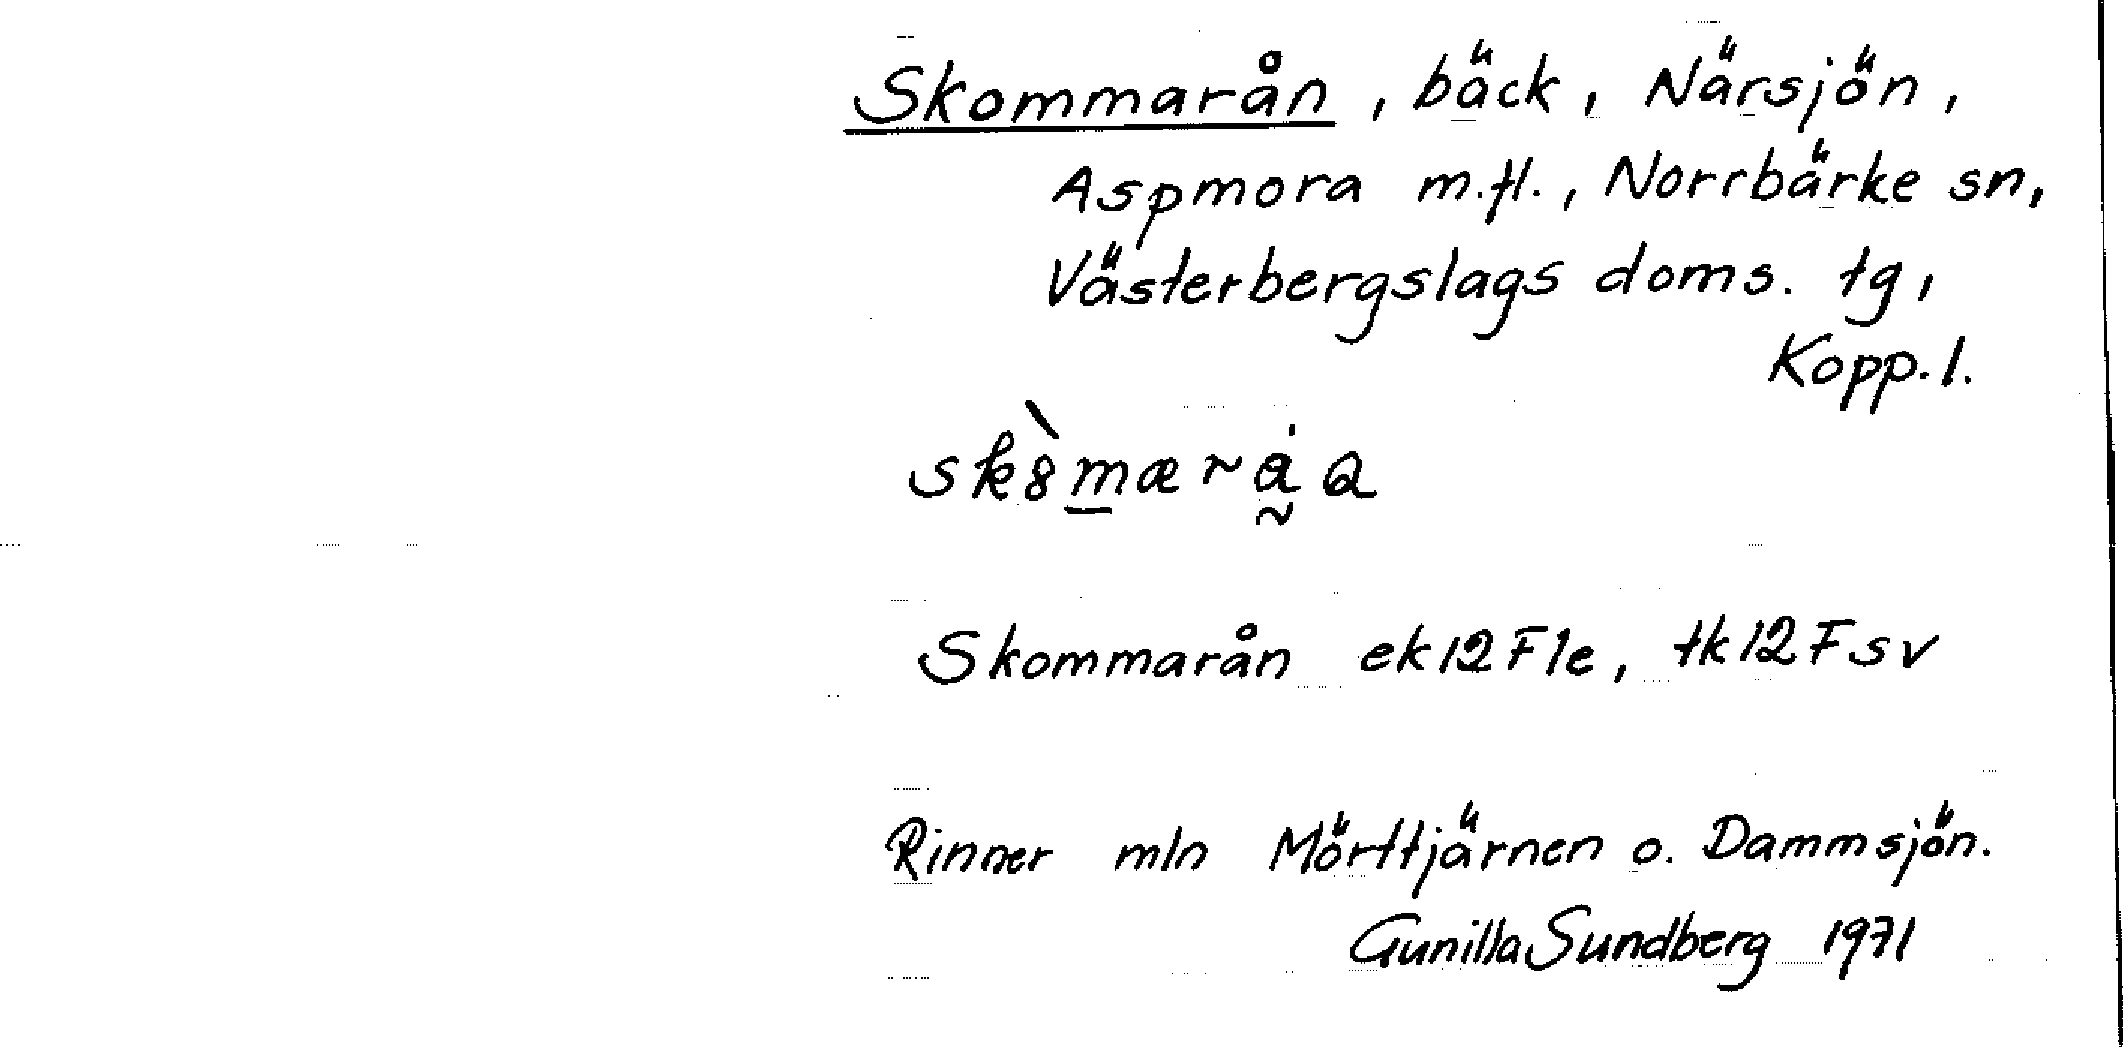 Skommarån, bäck, Närsjön,
Aspmora m.fl., Norrbärke sn,
Västerbergslags doms. tg,
Kopp. l.
Skommarån ek12F1e, tk12Fsv
Rinner mln Mörttjärnen o. Dammsjön.
Gunilla Sundberg 1971